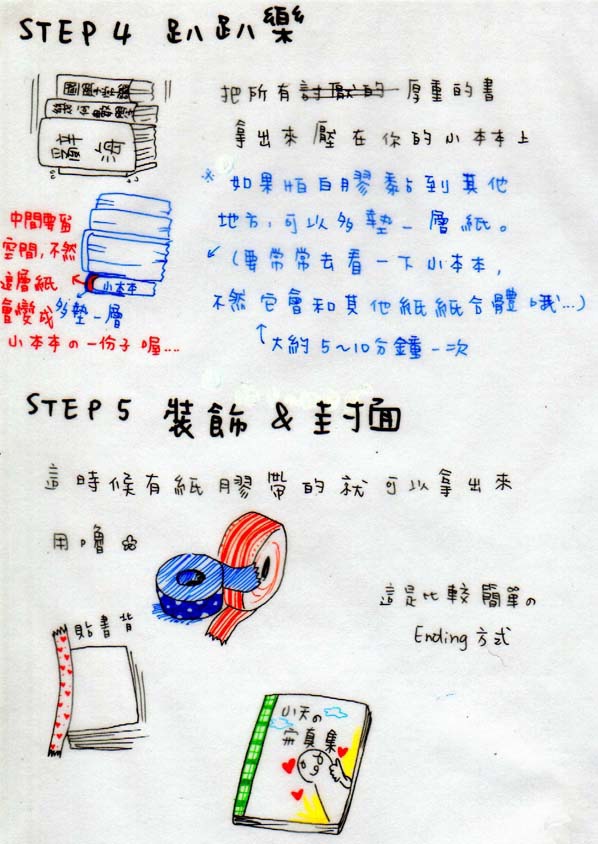 STEP 4 趴趴樂
把所有討厭的厚重的書
拿出來壓在你的小本本上
※如果怕白膠黏到其他
地方,可以多墊一層紙。
(要常常去看一下小本本,
不然它會和其他紙紙合體哦...)
大約5~10分鐘一次
中間要留
空間,不然
這層紙
會變成
小本本の一份子喔...
小本本
多墊一層
STEP 5 裝飾 & 封面
這時候有紙膠帶的就可以拿出來
用嚕
貼書背
這是比較簡單の
Ending 方式
小天の
寫真集